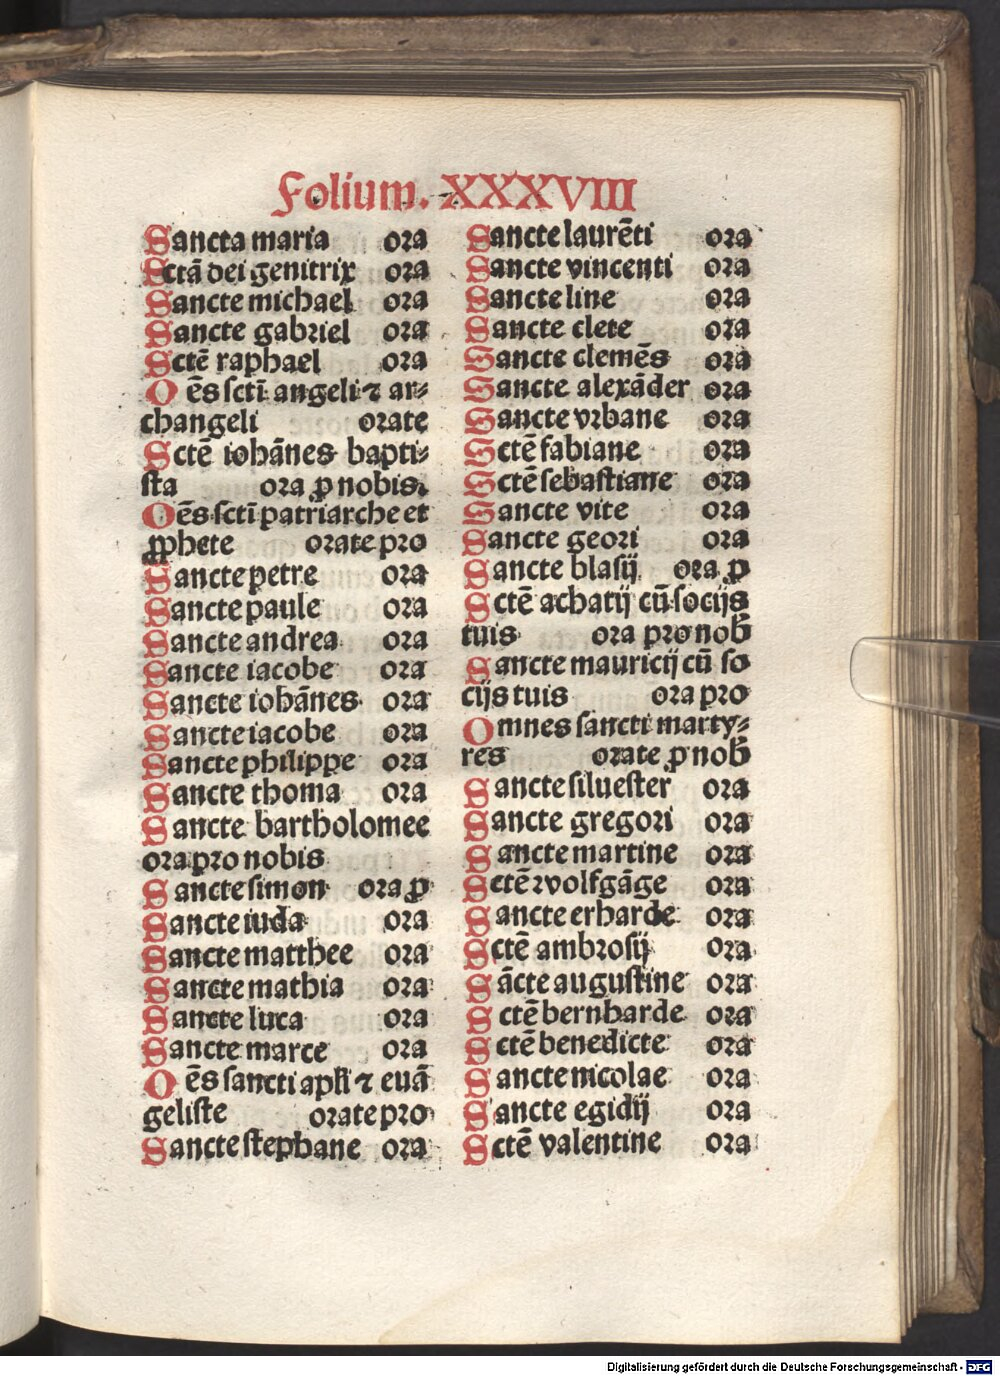 Folium. XXXVIII
Sancta maria ora
Sctā dei genitrix ora
Sancte michael ora
Sancte gabriel ora
Sctē raphael ora
Oēs scti angeli ⁊ ar⸗
changeli orate
Sctē iohānes bapti⸗
sta ora ꝓ nobis.
Oēs sctī patriarche et
ꝓphete orate pro
Sancte petre ora
Sancte paule ora
Sancte andrea ora
Sancte iacobe ora
Sancte iohānes ora
Sancte iacobe ora
Sancte philippe ora
Sancte thoma ora
Sancte bartholomee
ora pro nobis
Sancte simon ora ꝓ
Sancte iuda ora
Sancte matthee ora
Sancte mathia ora
Sancte luca ora
Sancte marce ora
Oēs sancti apli ⁊ euā
geliste orate pro
Sancte stephane ora
Sancte laurēti ora
Sancte vincenti ora
Sancte line ora
Sancte clete ora
Sancte clemēs ora
Sancte alexāder ora
Sancte vrbane ora
Sctē fabiane ora
Sctē sebastiane ora
Sancte vite ora
Sancte geori ora
Sancte blasij ora ꝓ
Sctē achatij cū socijs
tuis ora pro nob
Sancte mauricij cū so
cijs tuis ora pro
Omnes sancti marty⸗
res orate ꝓ nob
Sancte siluester ora
Sancte gregori ora
Sancte martine ora
Sctē wolfgāge ora
Sancte erharde ora
Sctē ambrosij ora
Sācte augustine ora
Sctē bernharde ora
Sctē benedicte ora
Sancte nicolae ora
Sancte egidij ora
Sctē valentine ora
Digitalisierung gefördert durch die Deutsche Forschungsgemeinschaft - DFG